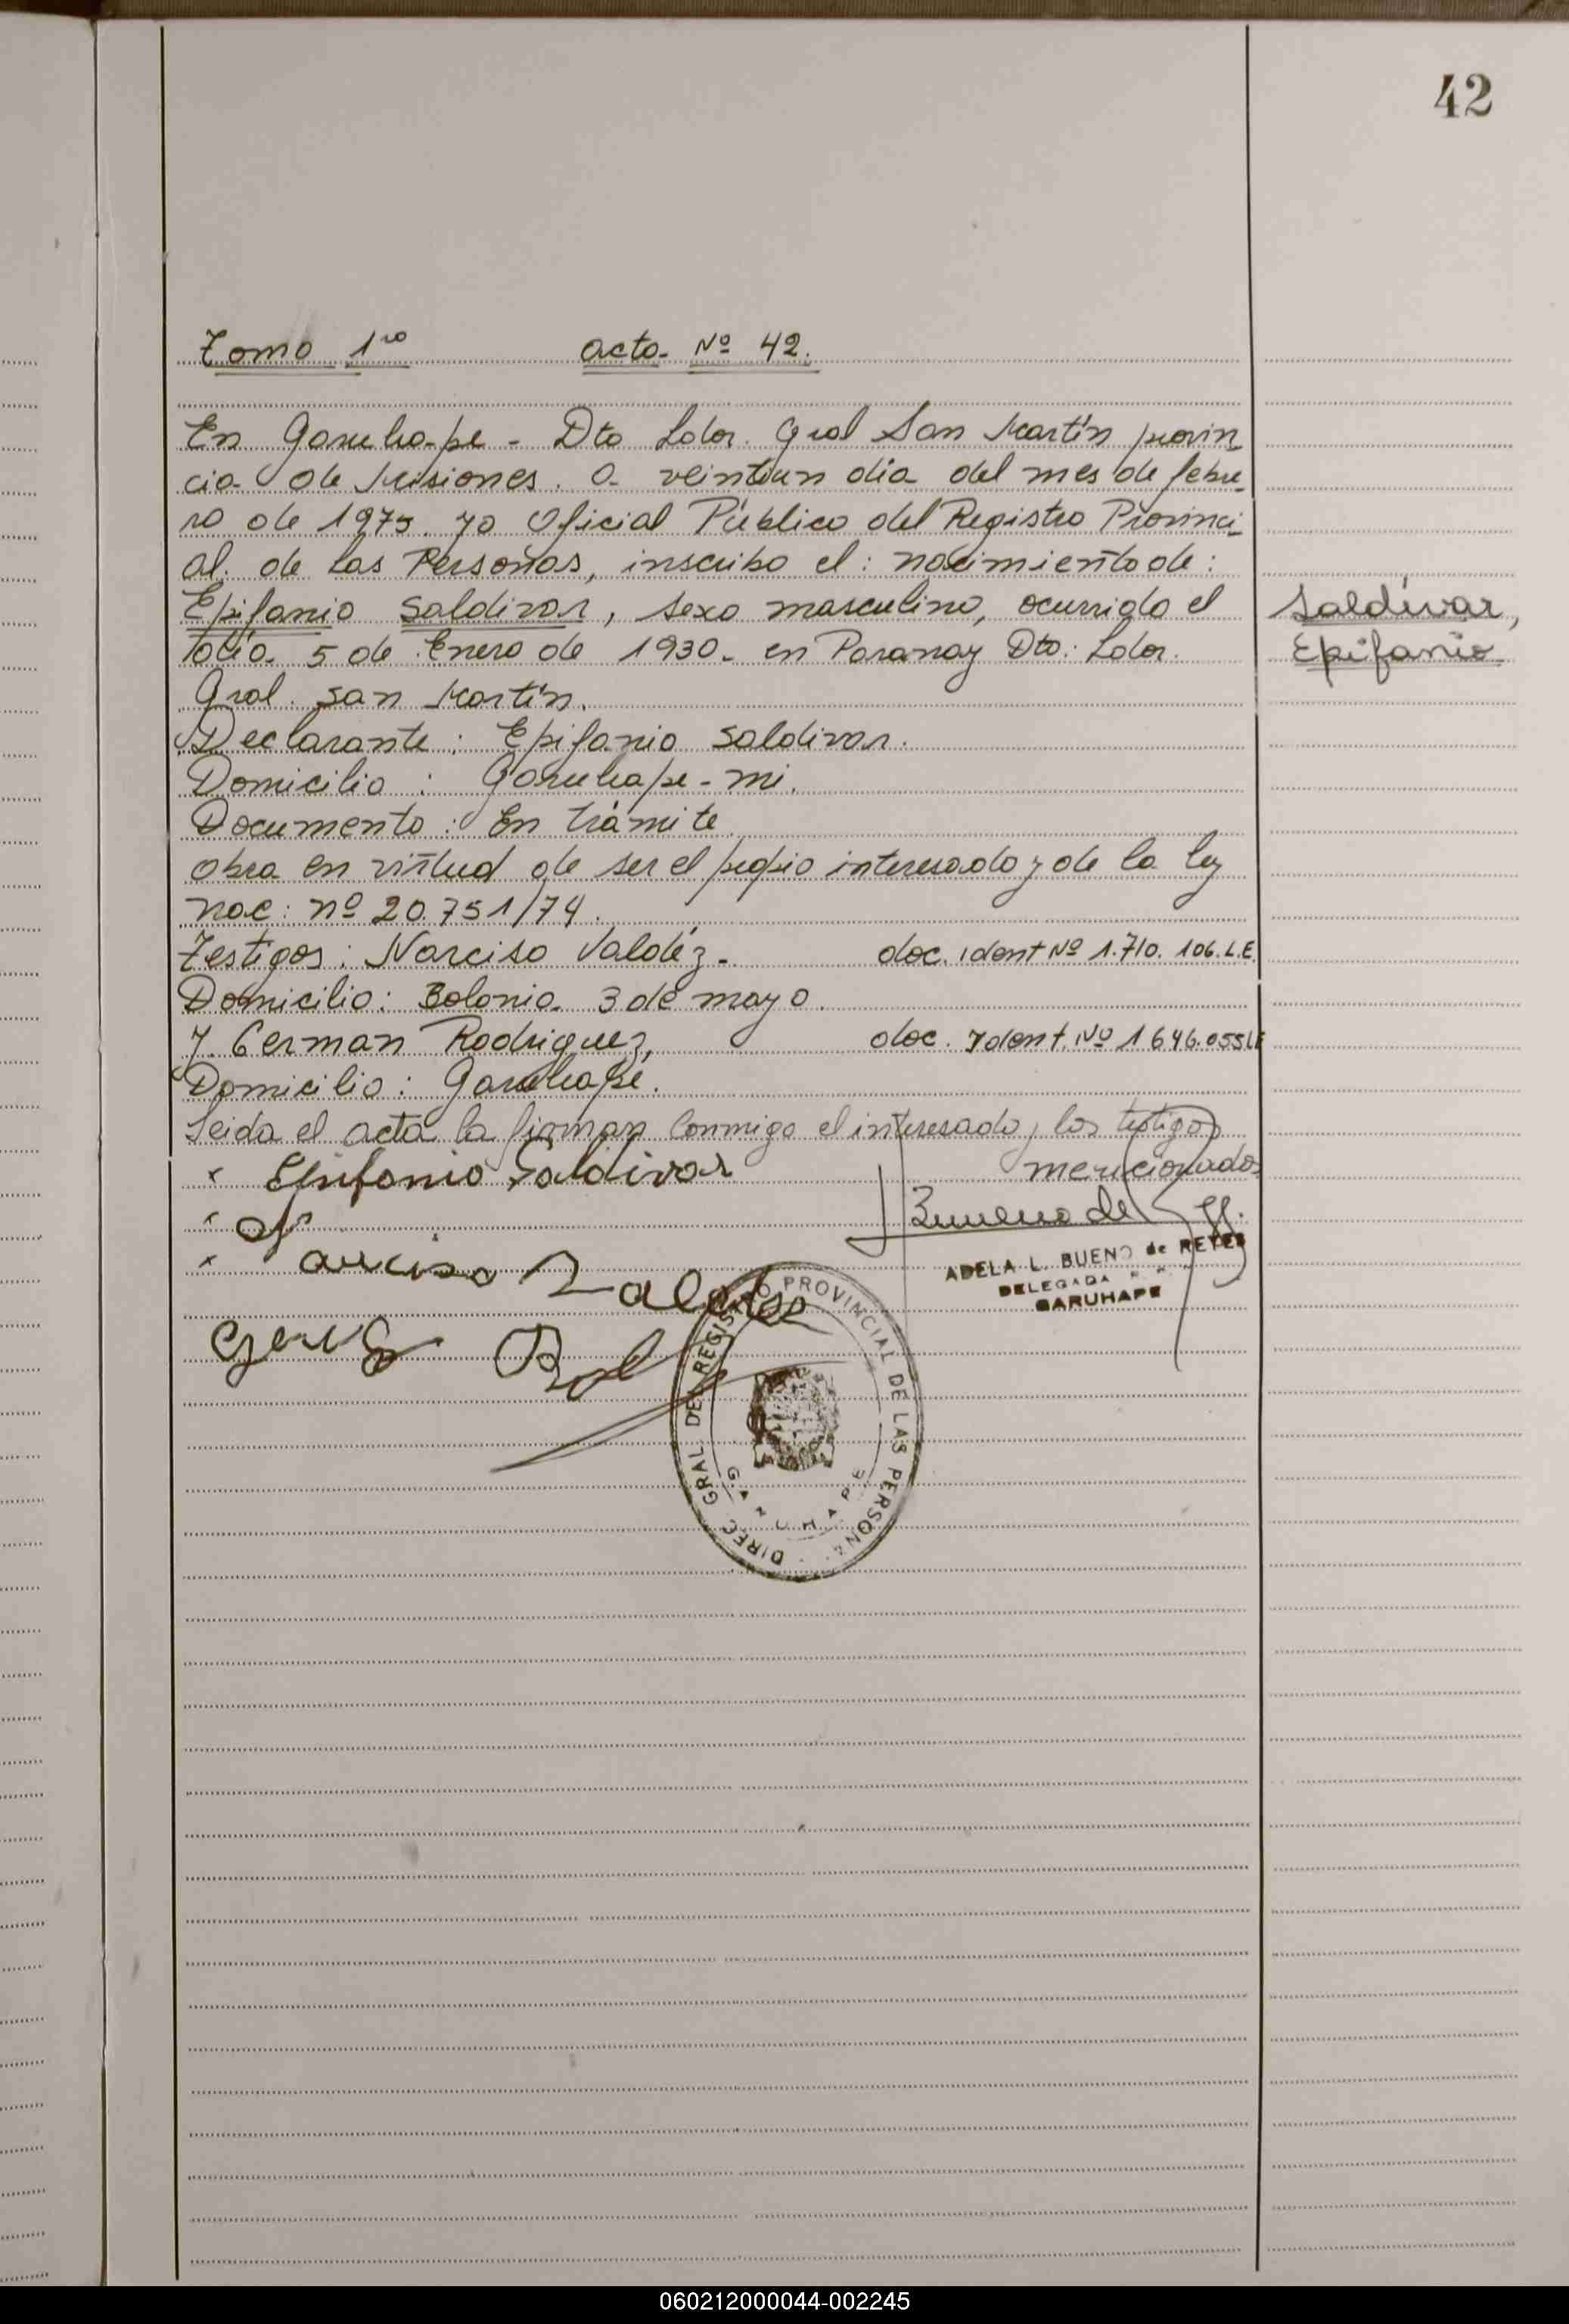 42
Tomo 1ro acta Nº 42.
En Garuha-pe - Dto Ldor. Gral San Martín provin
cia de Misiones. a veintiun dia del mes de febre
ro de 1975. yo Oficial Público del Registro Provinci
al. de las Personas, inscribo el: nacimiento de:
Epifanio Saldivar, sexo masculino, ocurrido el
día 5 de Enero de 1930. en Paranay Dto: Ldor.
Gral. San Martín.
Saldívar,
Epifanio
Declarante: Epifanio Saldivar.
Domicilio: Garuhape-mi.
Documento: En trámite
obra en virtud de ser el propio interesado y de la ley
nac: nº 20.751/74.
Testigos: Narciso Valdéz. doc. ident Nº 1.710.106.L.E.
Domicilio: Colonia 3 de mayo.
y. German Rodriguez, doc. Ydent. Nº 1646.055LE
Domicilio: Garuhapé.
Leida el acta la firman conmigo el interesado y los testigos
mencionados
x Epifanio Saldivar
ADELA L. BUENO de REYES
DELEGADA
GARUHAPE
DIREC. GRAL. DEL REGISTRO PROVINCIAL DE LAS PERSONAS
GARUHAPE
060212000044-002245